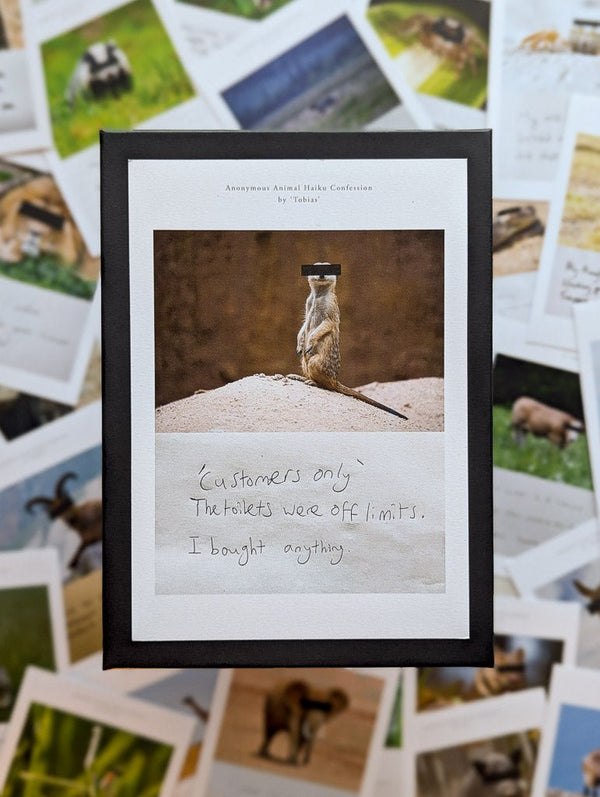 Anonymous Animal Haiku Confession
by 'Tobias'
'Customers only'
The toilets were off limits.
I bought anything.